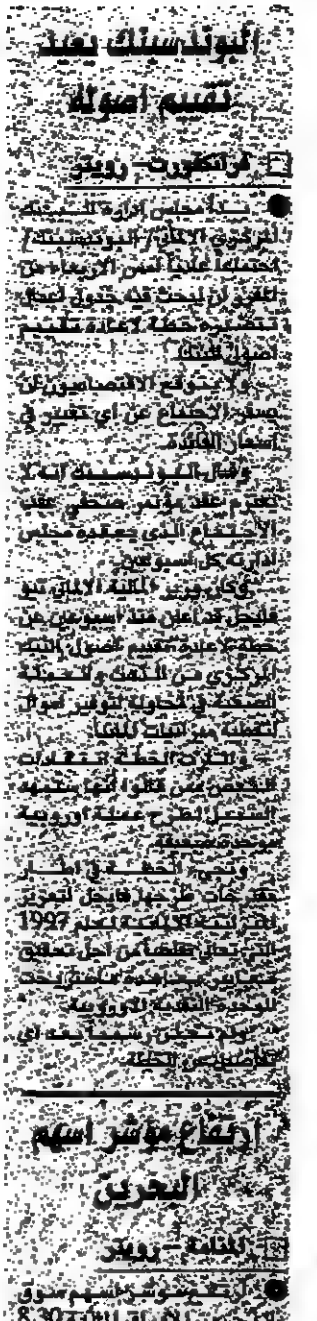 البوندسبنك يعيد
تقييم أصوله
فرانكفورت - رويتر
بدأ مجلس إدارة البنك
المركزي الألماني / البوندسبنك /
اجتماعا عاديا أمس الأربعاء من
المقرر أن يبحث فيه جدول أعمال
يتصدره خطة لإعادة تقييم
أصول البنك.
ولا يتوقع الاقتصاديون أن
يسفر الاجتماع عن أي تغيير في
أسعار الفائدة.
وقال البوندسبنك إنه لا
يعتزم عقد مؤتمر صحفي عقب
الاجتماع الذي يعقده مجلس
إدارته كل أسبوعين.
وكان وزير المالية الألماني تيو
فايجل قد أعلن منذ أسبوعين عن
خطة لإعادة تقييم أصول البنك
المركزي من الذهب والعملة
الصعبة في محاولة لتوفير أموال
لتغطية ميزانيات
وأثارت الخطة انتقادات
البعض ممن قالوا أنها ستمهد
السبيل لطرح عملة أوروبية
موحدة ضعيفة.
وتجيء الخطة في إطار
مقترحات طرحها فايجل لتعزيز
الميزانية الألمانية لعام 1997
التي تعاني نقصا من أجل تحقيق
معايير معاهدة ماستريخت
للوحدة النقدية الأوروبية.
ولم تعلن رسميا بعد أي
تفاصيل عن الخطة.
ارتفاع مؤشر أسهم
البحرين
المنامة - رويتر
ارتفع مؤشر أسهم سوق
8.30